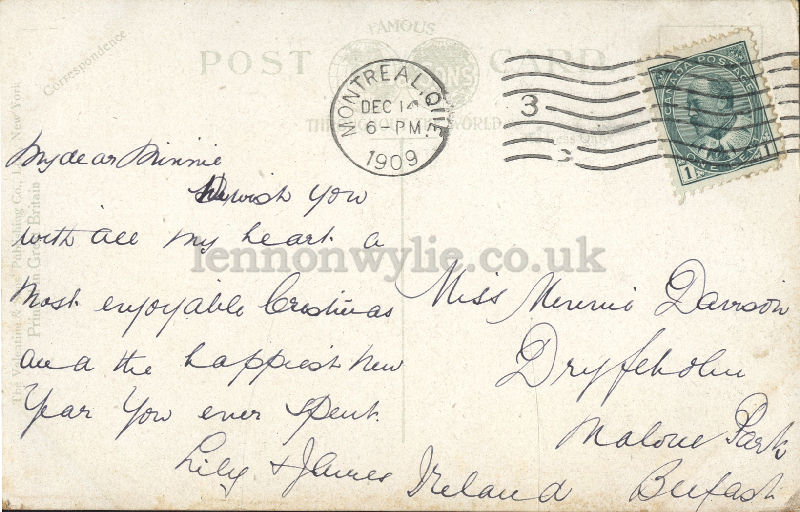 FAMOUS
POST CARD
THROUGHOUT THE WORLD
Correspondence
The Valentine & Publishing Co., New York
Printed in Great Britain
MONTREAL, QUE.
DEC 14
6-PM
1909
3
CANADA POSTAGE
1 ONE CENT 1
My dear Minnie
wish you
with all my heart a
most enjoyable Cristmas
and the happiest New
Year You ever spent.
Lily & James
Miss Minnie Davison
Dryfeholm
Malone Park
Ireland Belfast
lennonwylie.co.uk